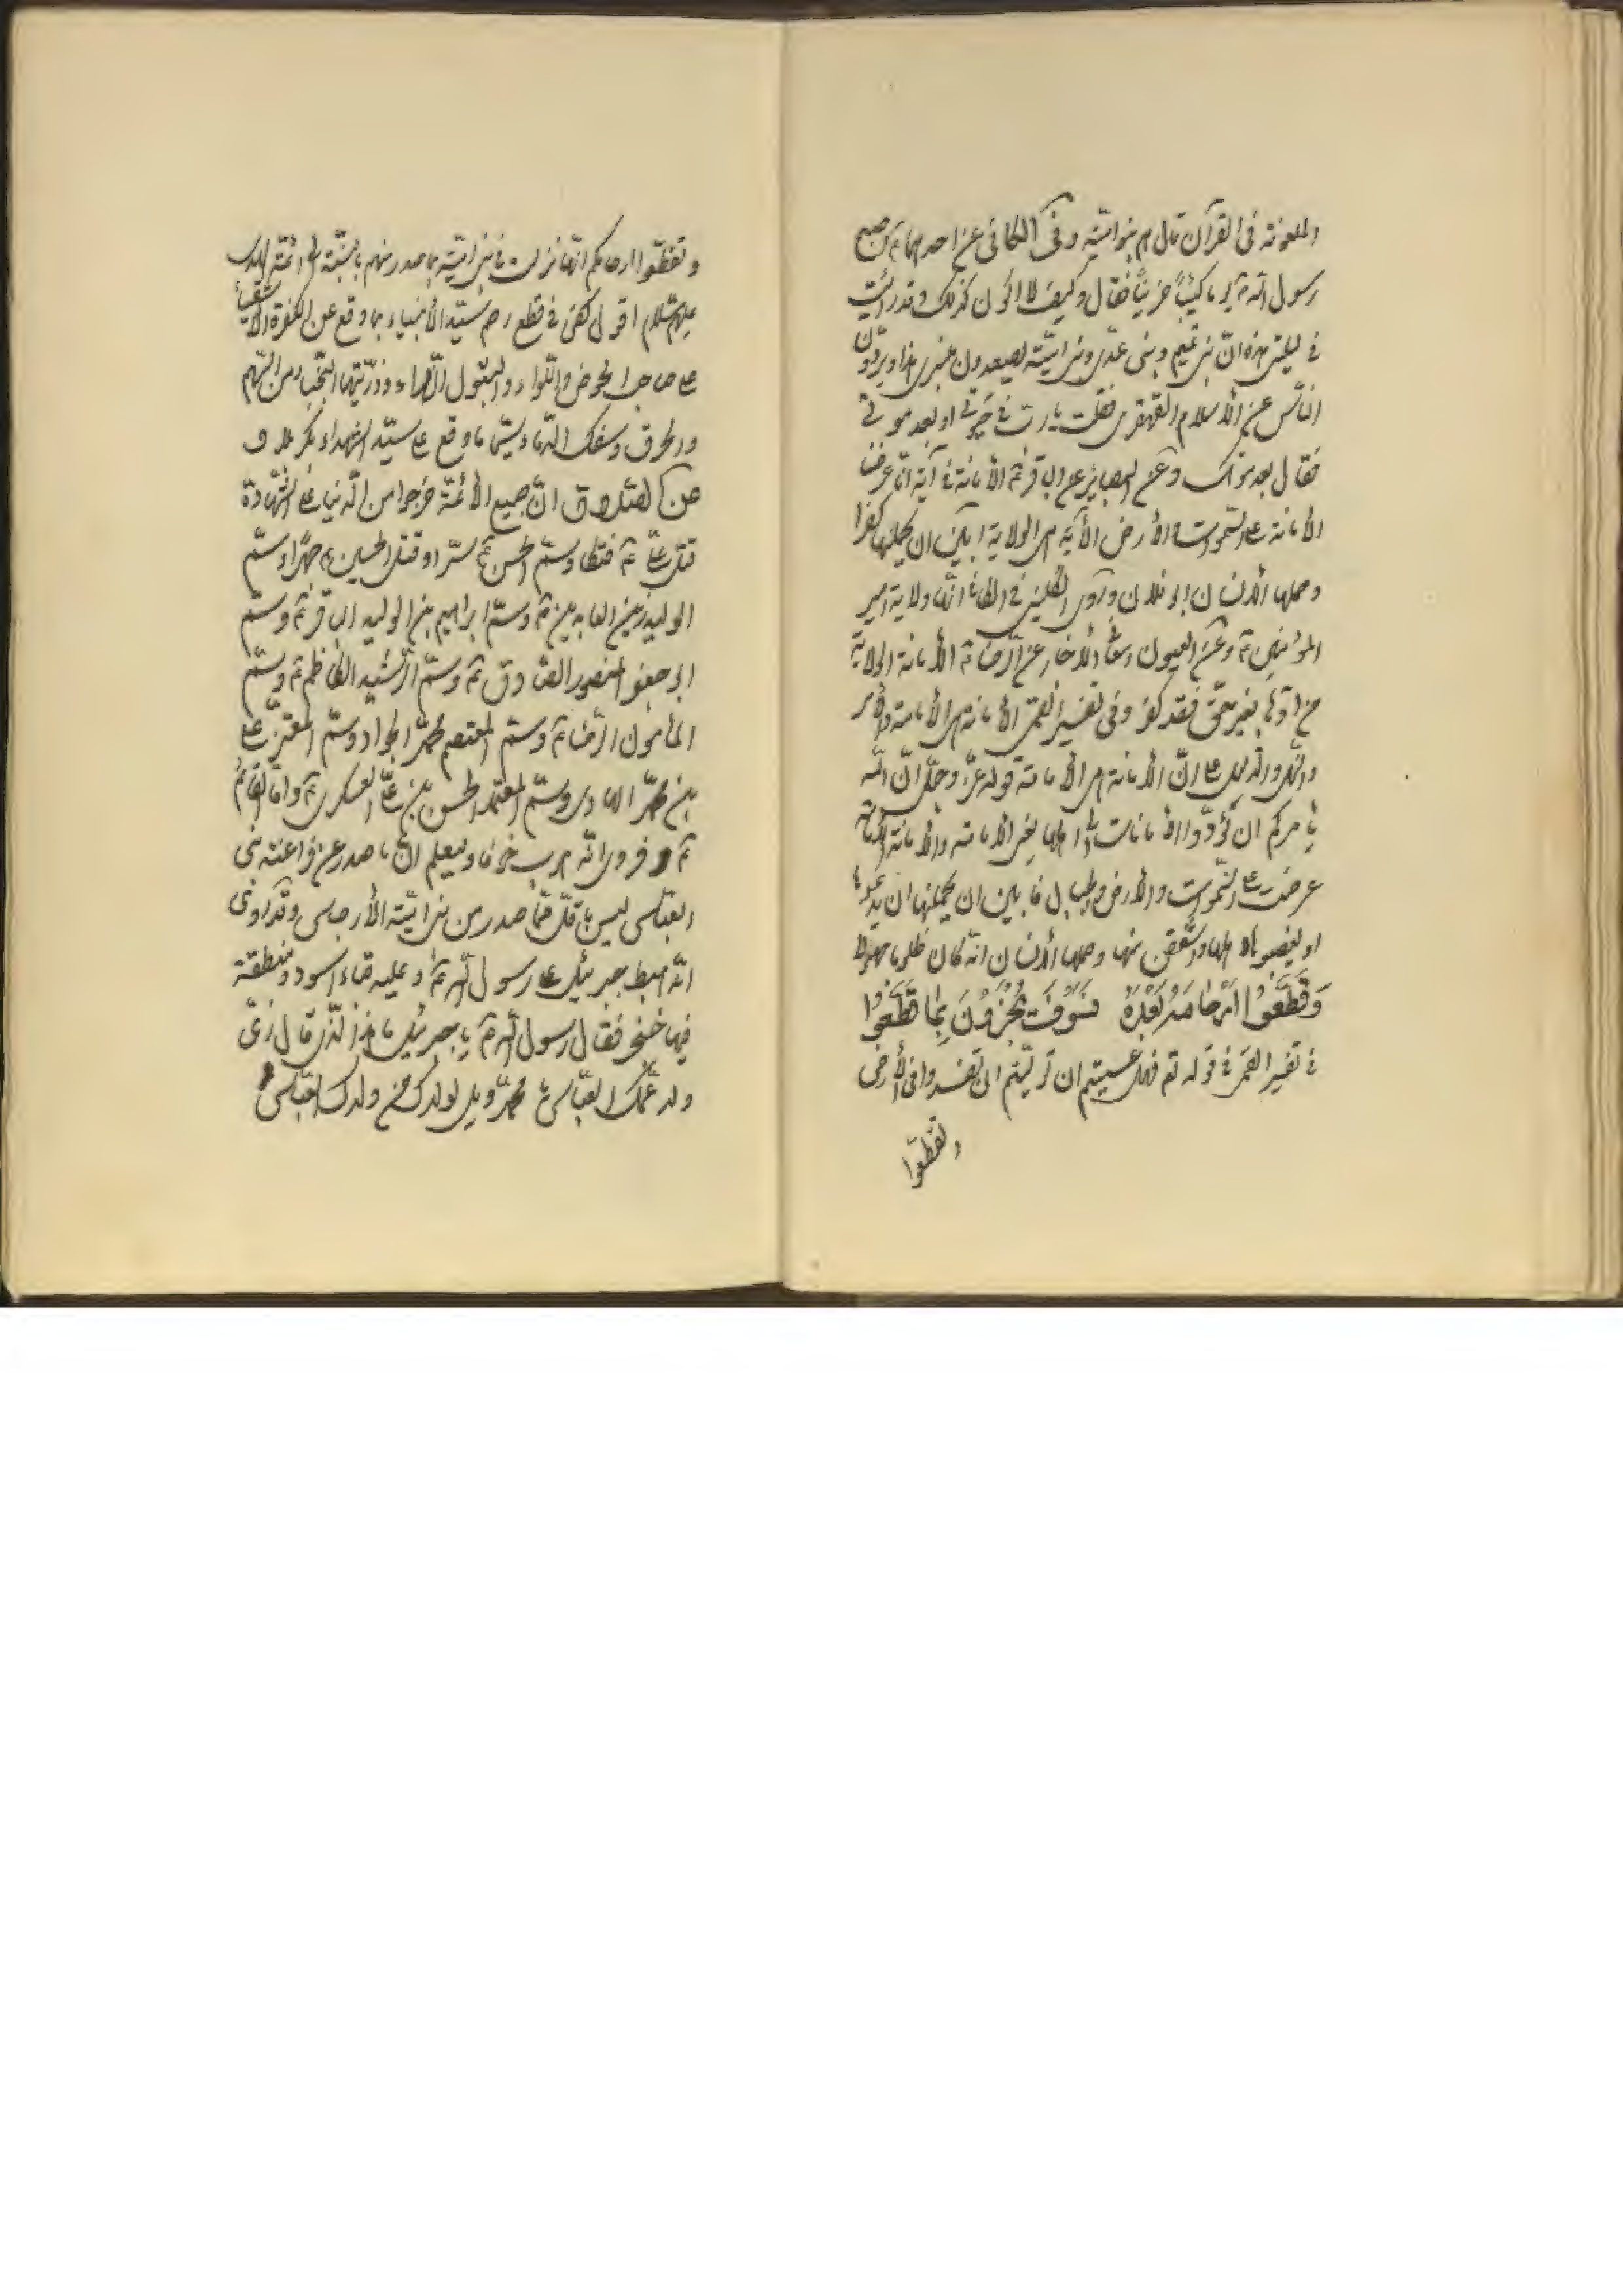 الملعونة فى القرآن قال هم بنو اميّة وفى الكافى عن احدهما ع اصبح
رسول الله ص يوما كئيباً حزيناً فقال وكيف لا اكون كذلك وقد رأيت
فى ليلتى هذه انّ بنى تيم وبنى عدى وبنى اميّة يصعدون منبرى هذا ويردّون
النّاس عن الأسلام القهقرى فقلت يا ربّ فى حيوتى او بعد موتى
فقال بعد موتك وعن البصاير عن الباقر ع الأمانة فى آية انّا عرضنا
الأمانة على السّموات والأرض الآية هى الولاية ابين ان يحملنها كفرا
وحملها الأنسان ابو فلان وروى الكلينى فى الكافى انّها ولاية امير
المؤمنين ع وعن العيون ومعانى الأخبار عن الرّضا ع الأمانة الولاية
من ادّعاها بغير حقّ فقد كفر وفى تفسير القمى الأمانة هى الأمامة والأمر
والنّهى والدليل على انّ الأمانة هى الأمامة قوله عزّ وجلّ انّ الله
يأمركم ان تؤدّوا الأمانات الى اهلها يعنى الأمامة والأمانة الأمامة
عرضت على السّموات والأرض والجبال فابين ان يحملنها ان يدّعوها
او يغصبوها اهلها واشفقن منها وحملها الأنسان انّه كان ظلوما جهولا
وَقَطَّعَوُا اَرْحَامَهُ بَعْدَهُ فَسَوْفَ يُجْزَوْنَ بِمَا قَطَّعَوُا
فى تفسير القمى فى قوله تع فهل عسيتم ان تولّيتم ان تفسدوا فى الأرض
وتقطّعوا
وتقطّعوا ارحامكم انّها نزلت فى بنى اميّة بما صدر منهم بالنسبة الى ائمّة الهدى
عليهم السّلام اقول كفى فى قطع رحم سيّد الأنبياء ما وقع عن الكفرة الأشقياء
على صاحب الحوض واللّواء والبتول الزّهراء وذرّيتهما النّجباء من السّهم
والحرق وسفك الدّماء سيّما ما وقع على سيّد الشهداء بكربلا و
عن الصّادق انّ جميع الأئمّة خرجوا من الدّنيا على الشّهادة
قتل علىّ ع فتكا وسمّ الحسن ع سرّا وقتل الحسين ع جهرًا وسمّ
الوليد زين العابدين ع وسمّ ابراهيم بن الوليد الباقر ع وسمّ
ابو جعفر المنصور الصّادق ع وسمّ الرّشيد الكاظم ع وسمّ
المأمون الرّضا ع وسمّ المعتصم محمّد الجواد وسمّ المعتزّ علىّ
بن محمّد الهادى وسمّ المعتمد الحسن بن علىّ العسكرى ع وامّا القائم
ع فروى انّه هرب خوفا وليعلم انّ ما صدر عن فراعنة بنى
العبّاس ليس باقلّ ممّا صدر من بنى اميّة الأرجاس وقد روى
انّه هبط جبرئيل على رسول الله ص وعليه قباء اسود ومنطقة
فيها خنجر فقال رسول الله ص يا جبرئيل ما هذا الّذى قال زىّ
ولد عمّك العبّاس يا محمّد ويل لولدك من ولدك العبّاس